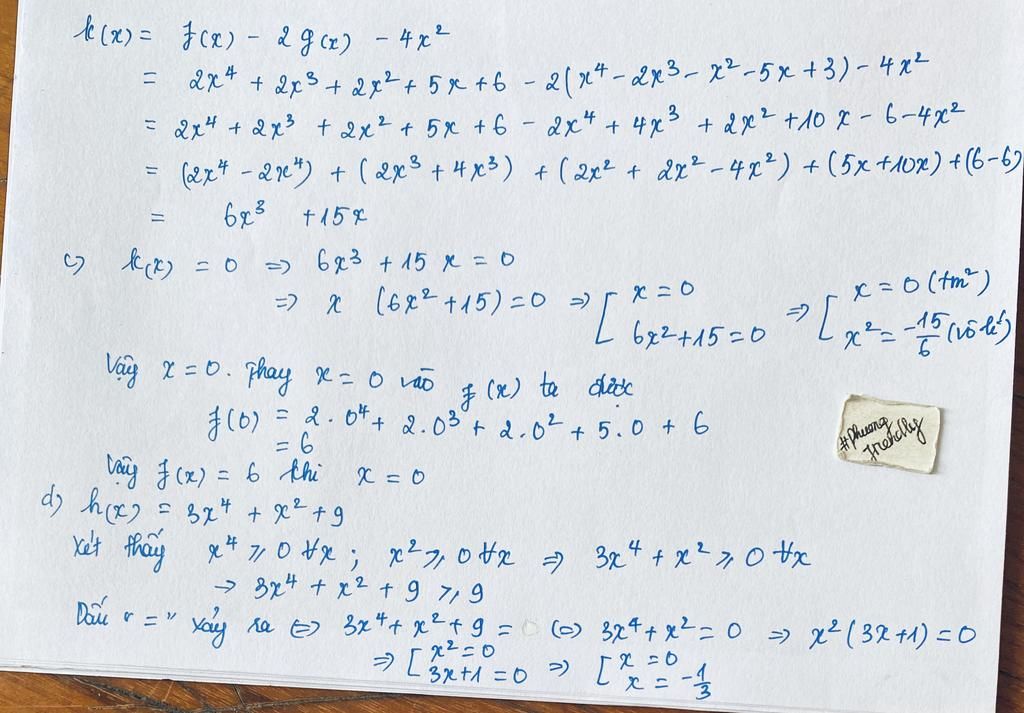 k(x) = f(x) - 2g(x) - 4x²
= 2x⁴ + 2x³ + 2x² + 5x + 6 - 2(x⁴ - 2x³ - x² - 5x + 3) - 4x²
= 2x⁴ + 2x³ + 2x² + 5x + 6 - 2x⁴ + 4x³ + 2x² + 10x - 6 - 4x²
= (2x⁴ - 2x⁴) + (2x³ + 4x³) + (2x² + 2x² - 4x²) + (5x + 10x) + (6 - 6)
= 6x³ + 15x
c) k(x) = 0 ⇒ 6x³ + 15x = 0
⇒ x (6x² + 15) = 0 ⇒ [ x = 0 ⇒ [ x = 0 (tm²)
6x² + 15 = 0 x² = -15/6 (vô lí)
Vậy x = 0. Thay x = 0 vào f(x) ta được
f(0) = 2.0⁴ + 2.0³ + 2.0² + 5.0 + 6
= 6
Vậy f(x) = 6 khi x = 0
#Phuong
friendly
d) h(x) = 3x⁴ + x² + 9
Xét thấy x⁴ ⩾ 0 ∀x ; x² ⩾ 0 ∀x ⇒ 3x⁴ + x² ⩾ 0 ∀x
→ 3x⁴ + x² + 9 ⩾ 9
Dấu "=" xảy ra ⇔ 3x⁴ + x² + 9 = 0 ⇔ 3x⁴ + x² = 0 ⇒ x²(3x + 1) = 0
⇒ [ x² = 0 ⇒ [ x = 0
3x + 1 = 0 x = -1/3